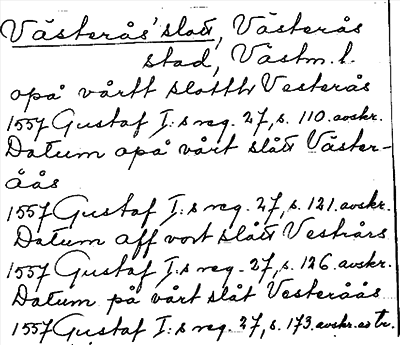 Västerås' slott, Västerås
stad, Västm. l.
opå vårtt slotth Vesterås
1557 Gustaf I:s reg. 27, s. 110. avskr.
Datum opå vårt slått Väster-
åås
1557 Gustaf I:s reg. 27, s. 121. avskr.
Datum aff vort slått Vestrårs
1557 Gustaf I:s reg. 27, s. 126. avskr.
Datum på vårt slåt Vesteråås
1557 Gustaf I:s reg. 27, s. 173. avskr.